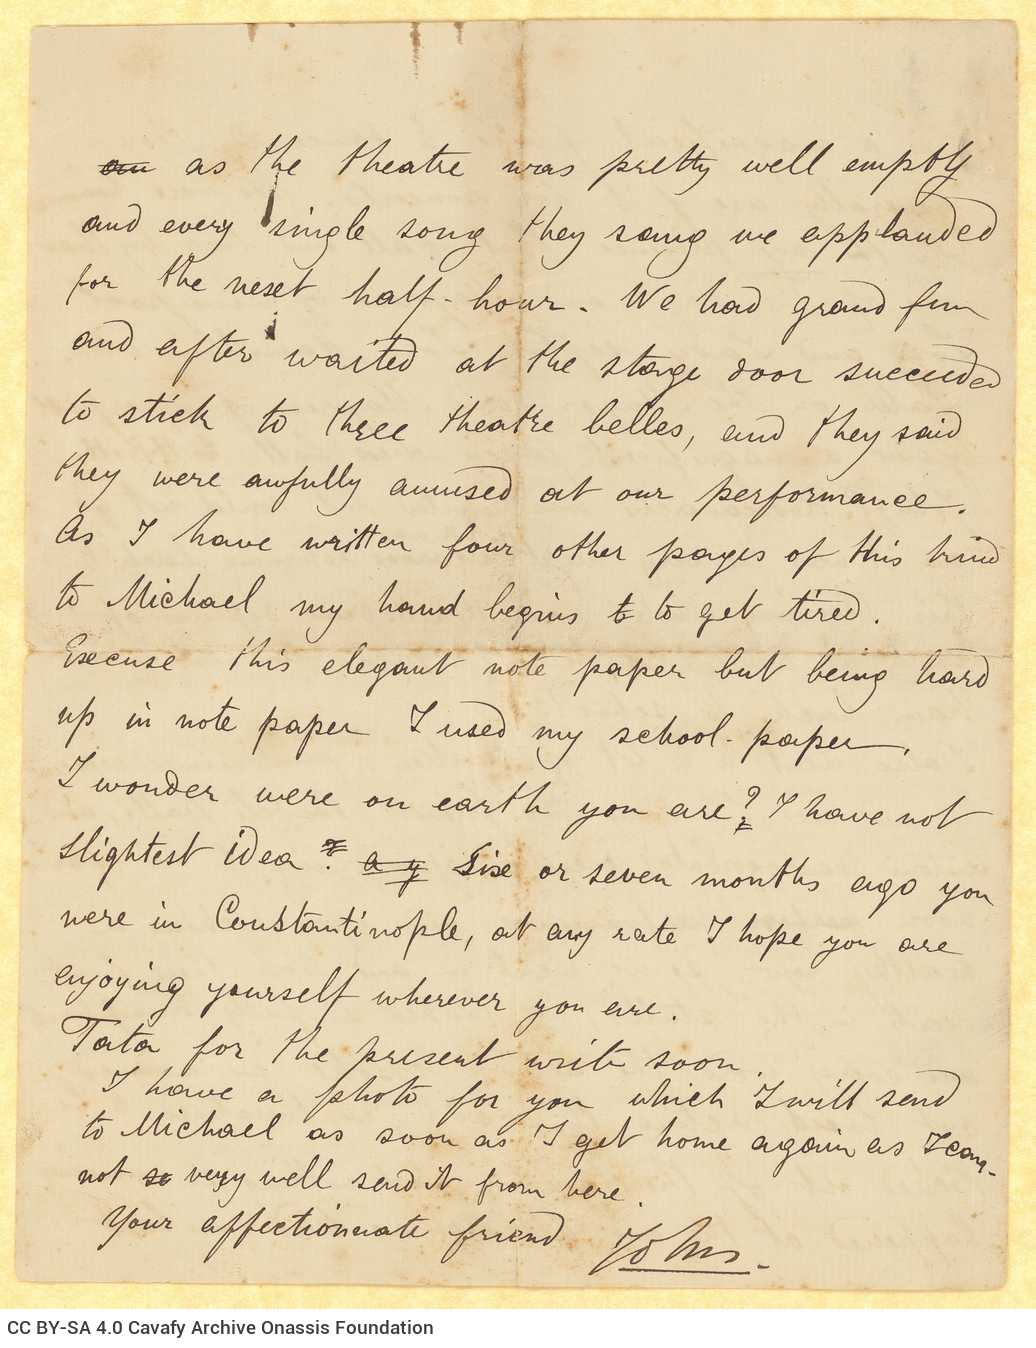 an as the theatre was pretty well empty
and every single song they sang we applauded
for the next half-hour. We had grand fun
and after waited at the stage door succeeded
to stick to three theatre belles, and they said
they were awfully amused at our performance.
As I have written four other pages of this kind
to Michael my hand begins to to get tired.
Excuse this elegant note paper but being hard
up in note paper I used my school-paper.
I wonder were on earth you are? I have not
slightest idea. a y Six or seven months ago you
were in Constantinople, at any rate I hope you are
enjoying yourself wherever you are.
Tata for the present write soon.
I have a photo for you which I will send
to Michael as soon as I get home again as I can-
not so very well send it from here.
Your affectionate friend John.
CC BY-SA 4.0 Cavafy Archive Onassis Foundation